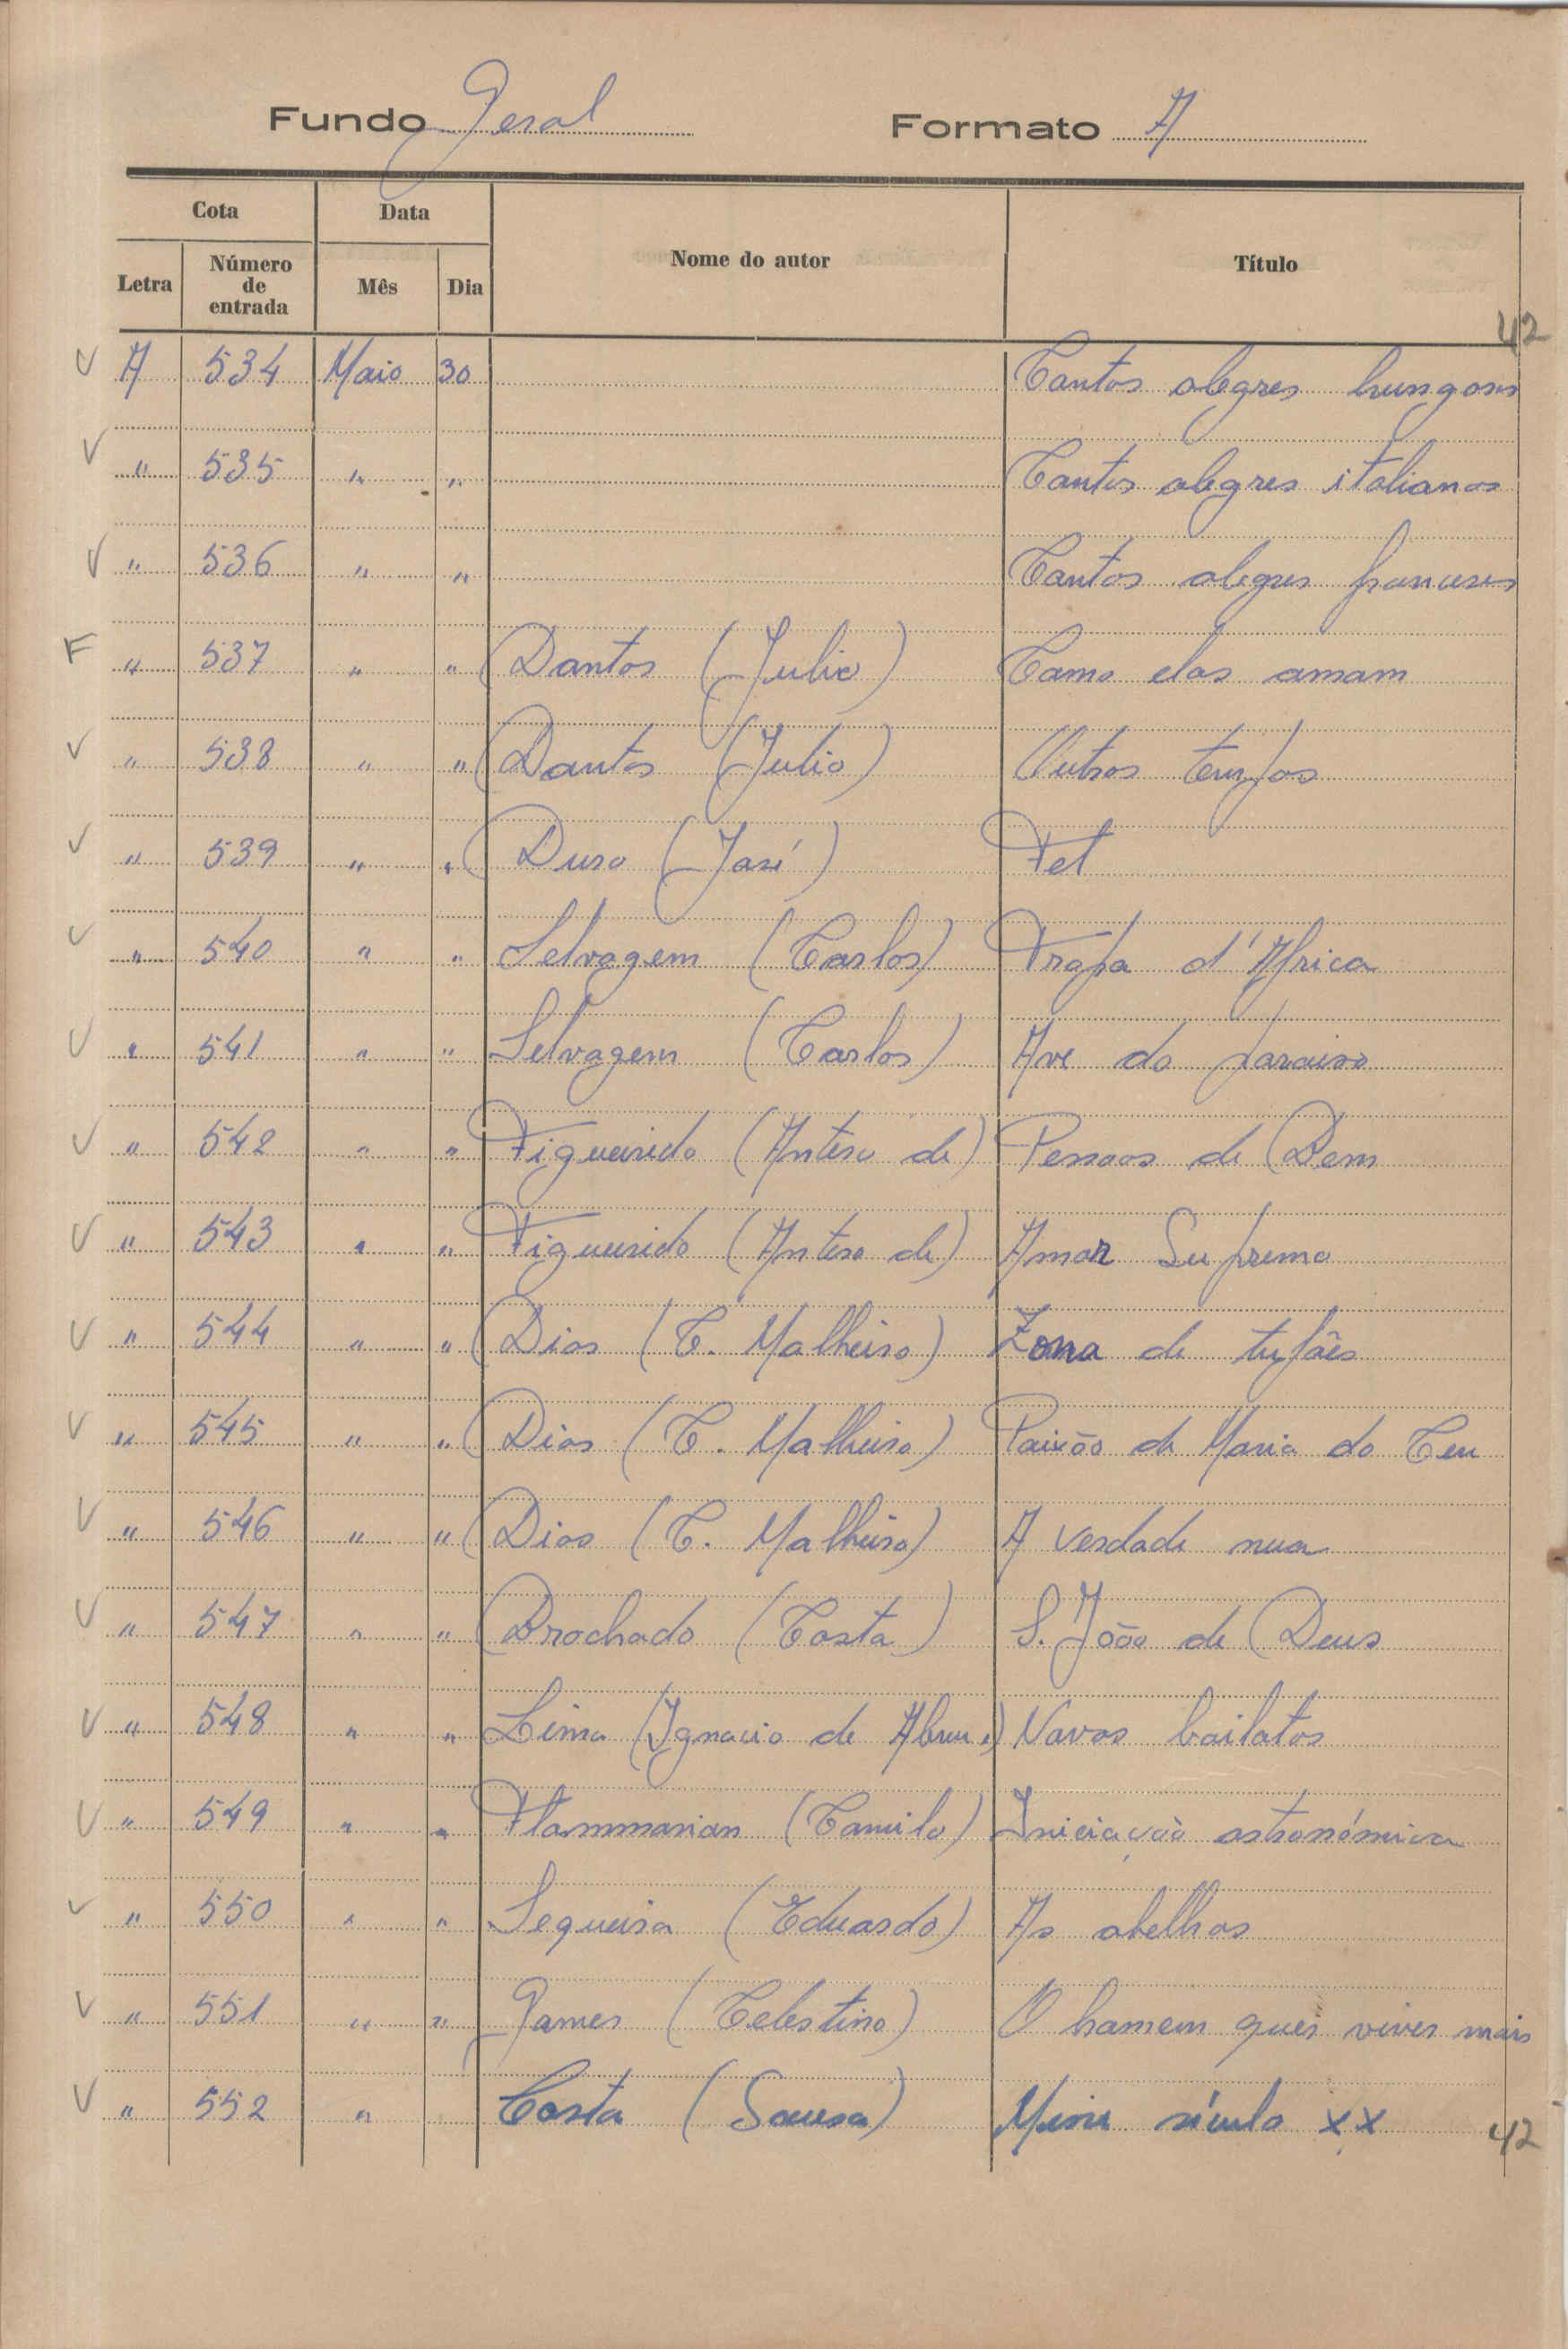 Fundo Geral Formato A
Cota Data Nome do autor Título
Letra Número de entrada Mês Dia
42
V A 534 Maio 30 Contos alegres hungaros
V " 535 " " Contos alegres italianos
V " 536 " " Contos alegres franceses
F " 537 " " Dantas (Julio) Como elas amam
V " 538 " " Dantas (Julio) Outros tempos
V " 539 " " Duro (José) Fel
V " 540 " " Selvagem (Carlos) Tropa d'Africa
V " 541 " " Selvagem (Carlos) Ave do paraiso
V " 542 " " Figueiredo (Antero de) Pessoas de Bem
V " 543 " " Figueiredo (Antero de) Amor Supremo
V " 544 " " Dias (C. Malheiro) Zona de tufões
V " 545 " " Dias (C. Malheiro) Paixão de Maria do Ceu
V " 546 " " Dias (C. Malheiro) A verdade nua
V " 547 " " Brochado (Costa) S. João de Deus
V " 548 " " Lima (Ignacio de Abreu.) Novos bailatos
V " 549 " " Flammarian (Camilo) Iniciação astronómica
V " 550 " " Sequeira (Eduardo) As abelhas
V " 551 " " Gomes (Celestino) O homem quei viver mais
V " 552 " Costa (Sousa) século XX
42